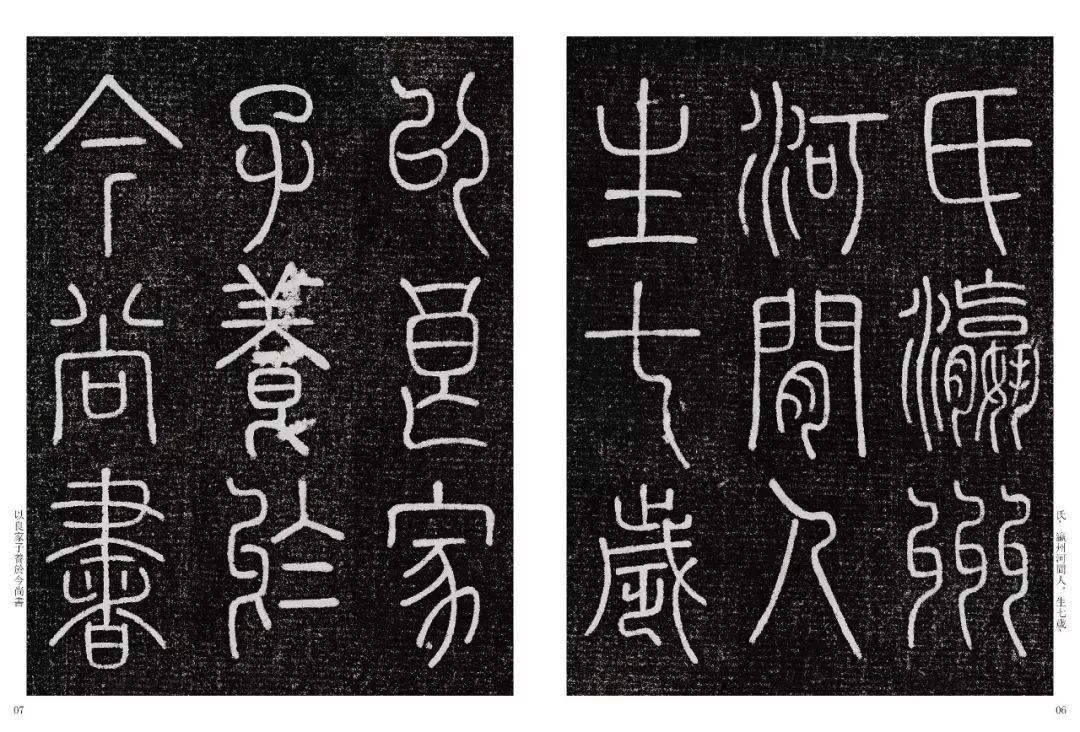 氏瀛州
河間人
生七歲
氏，瀛州河間人。生七歲，
06
以良家
子養於
今尚書
以良家子養於今尚書
07